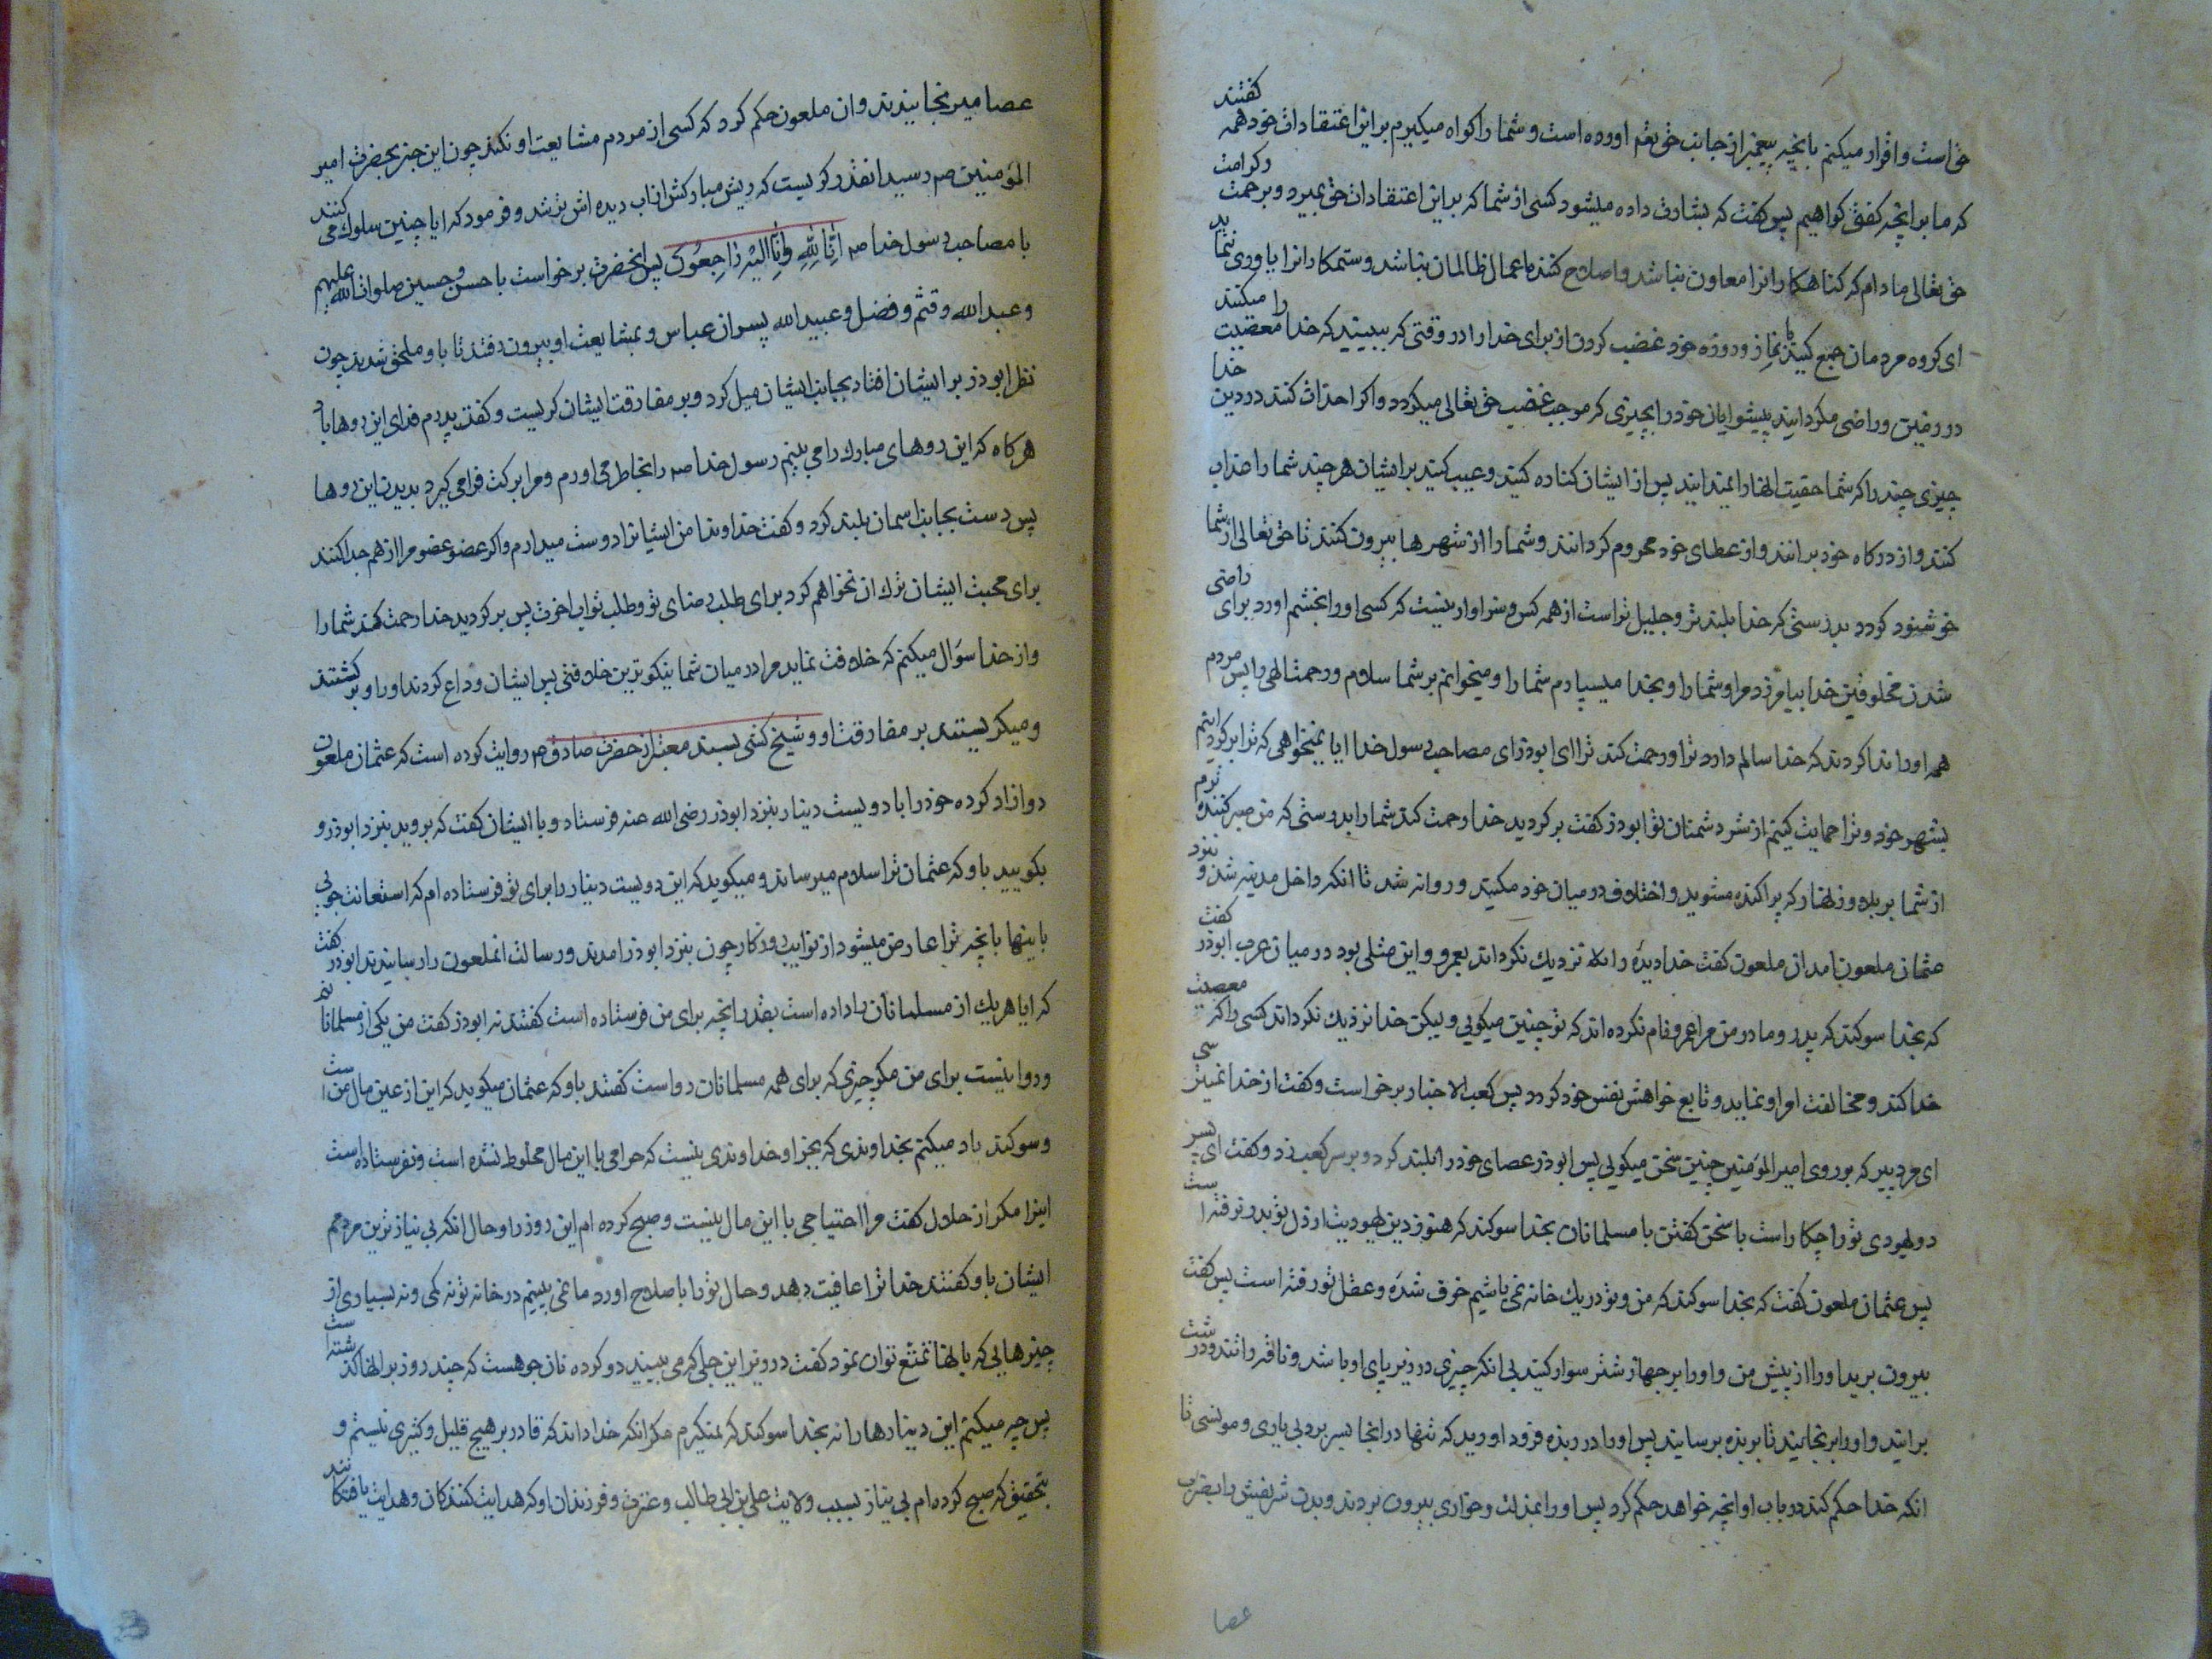 حق است و اقرار میکنم بانچه پیغمبر از جانب حق تعم اورده است و شما را کواه میکیرم براین اعتقادات خود همه کفتند
که ما برانچه کفتی کواهیم پس کفت که بشارت داده میشود کسی از شما که بر این اعتقادات حق بمیرد و برحمت و کرامت
حق تعالی مادام که کناهکارانرا معاون نباشد و اصلاح کننده اعمال ظالمان نباشد و ستمکارانرا یاوری ننماید
ای کروه مردمان جمع کنید با نماز و روزه خود غضب کردن از برای خدا را در وقتی که ببینید که خدا را معصیت میکنند
در زمین و راضی مکردانید پیشوایان خود را بچیزی که موجب غضب حق تعالی میکردد و اکر احداث کنند در دین خدا
چیزی چند را که شما حقیت انها را نمیدانید پس از ایشان کناره کنید و عیب کنید بر ایشان هر چند شما را عذاب
کنند و از درکاه خود برانند و از عطای خود محروم کردانند و شما را از شهرها بیرون کنند تا حق تعالی از شما
خوشنود کردد بدرستی که خدا بلندتر و جلیل تر است از همه کس و سزاوار نیست که کسی او را بخشم اورد برای راضی
شدن مخلوقین خدا بیامرزد مرا و شما را و بخدا میسپارم شما را و میخوانم بر شما سلام و رحمت الهی را پس مردم
همه او را ندا کردند که خدا سالم دارد ترا و رحمت کند ترا ای ابوذر ای مصاحب رسول خدا ایا نمیخواهی که ترا برکردانیم
بشهر خود و ترا حمایت کنیم از شر دشمنان تو ابوذر کفت برکردید خدا رحمت کند شما را بدرستی که من صبر کننده ترم
از شما بر بلا و زنهار که پراکنده مشوید و اختلاف در میان خود مکنید و روانه شد تا انکه داخل مدینه شد و نزد
عثمان ملعون امد ان ملعون کفت خدا دیده را بلا نزدیك نکرداند بعمرو و این مثلی بود در میان عرب ابوذر کفت
که بخدا سوکند که پدر و مادر من مرا عمرو نام نکرده اند که تو چنین میکویی و لیکن خدا نزدیك نکرداند کسی را که معصیت
خدا کند و مخالفت امر او نماید و تابع خواهش نفس خود کردد پس کعب الاحبار برخواست و کفت از خدا نمیترسی
ای مرد پیر که بروی امیر المؤمنین چنین سخن میکویی پس ابوذر عصای خود را بلند کرد و بر سر کعب زد و کفت ای پسر
دو یهودی تو را چکار است با سخن کفتن با مسلمانان بخدا سوکند که هنوز دین یهودیت از دل تو بدر نرفته است
پس عثمان ملعون کفت که بخدا سوکند که من و تو در یك خانه نمی باشیم خرف شده و عقل تو رفته است پس کفت
بیرون برید او را از پیش من و او را بر جهاز شتر سوار کنید بی انکه چیزی در زیر پای او باشد و ناقه را تند و درشت
برانید و او را برنجانید تا بربذه برسانید پس او را در ربذه فرود اورید که تنها در انجا بسر برد بی یاری و مونسی تا
انکه خدا حکم کند در باب او انچه خواهد حکم کرد پس او را بمذلت و خواری بیرون بردند و بدن شریفش را بضرب
عصا
عصا میرنجانیدند و ان ملعون حکم کرد که کسی از مردم مشایعت او نکند چون این خبر بحضرت امیر
المؤمنین صم رسید انقدر کریست که ریش مبارکش از اب دیده اش تر شد و فرمود که ایا چنین سلوك می کنند
با مصاحب رسول خدا صم انا لله وانا الیه راجعون پس انحضرت برخواست با حسن و حسین صلوات الله علیهم
و عبد الله و قثم و فضل و عبید الله پسران عباس و بمشایعت او بیرون رفتند تا باو ملحق شدند چون
نظر ابوذر بر ایشان افتاد بجانب ایشان میل کرد و بر مفارقت ایشان کریست و کفت پدرم فدای این روها باد
هر کاه که این روهای مبارك را می بینم رسول خدا صم را بخاطر می اورم و مرا برکت فرا می کیرد بدیدن این روها
پس دست بجانب اسمان بلند کرد و کفت خداوندا من ایشانرا دوست میدارم و اکر عضو عضو مرا از هم جدا کنند
برای محبت ایشان ترك ان نخواهم کرد برای طلب رضای تو و طلب ثواب اخرت پس برکردید خدا رحمت کند شما را
و از خدا سؤال میکنم که خلافت نماید مرا در میان شما نیکوترین خلافتی پس ایشان وداع کردند او را و برکشتند
و میکریستند بر مفارقت او و شیخ کشی بسند معتبر از حضرت صادق صم روایت کرده است که عثمان ملعون
دو ازاد کرده خود را با دویست دینار بنزد ابوذر رضی الله عنه فرستاد و با ایشان کفت که بروید بنزد ابوذر و
بکویید باو که عثمان ترا سلام میرساند و میکوید که این دویست دینار را برای تو فرستاده ام که استعانت جویی
باینها بانچه ترا عارض میشود از نوایب روزکار چون بنزد ابوذر امدند و رسالت انملعون را رسانیدند ابوذر کفت
که ایا هر یك از مسلمانان را داده است بقدر انچه برای من فرستاده است کفتند نه ابوذر کفت من یکی از مسلمانانم
و روا نیست برای من مکر چیزی که برای همه مسلمانان روا است کفتند باو که عثمان میکوید که این از عین مال من است
و سوکند یاد میکنم بخداوندی که بجز او خداوندی نیست که حرامی با این مال مخلوط نشده است و نفرستاده است
اینرا مکر از حلال کفت مرا احتیاجی با این مال نیست و صبح کرده ام این روز را و حال انکه بی نیازترین مردمم
ایشان باو کفتند خدا ترا عافیت دهد و حال تو را باصلاح اورد ما نمی بینیم در خانه تو نه کمی و نه بسیاری از
چیزهایی که بانها تمتع توان نمود کفت در زیر این جلی که می بینید دو کرده نان جو هست که چند روز بر انها کذشته است
پس چه میکنم این دینارها را نه بخدا سوکند که نمیکیرم مکر انکه خدا داند که قادر بر هیچ قلیل و کثیری نیستم و
بتحقیق که صبح کرده ام بی نیاز بسبب ولایت علی بن ابی طالب و عترت و فرزندان او که هدایت کنندکان و هدایت یافتکانند